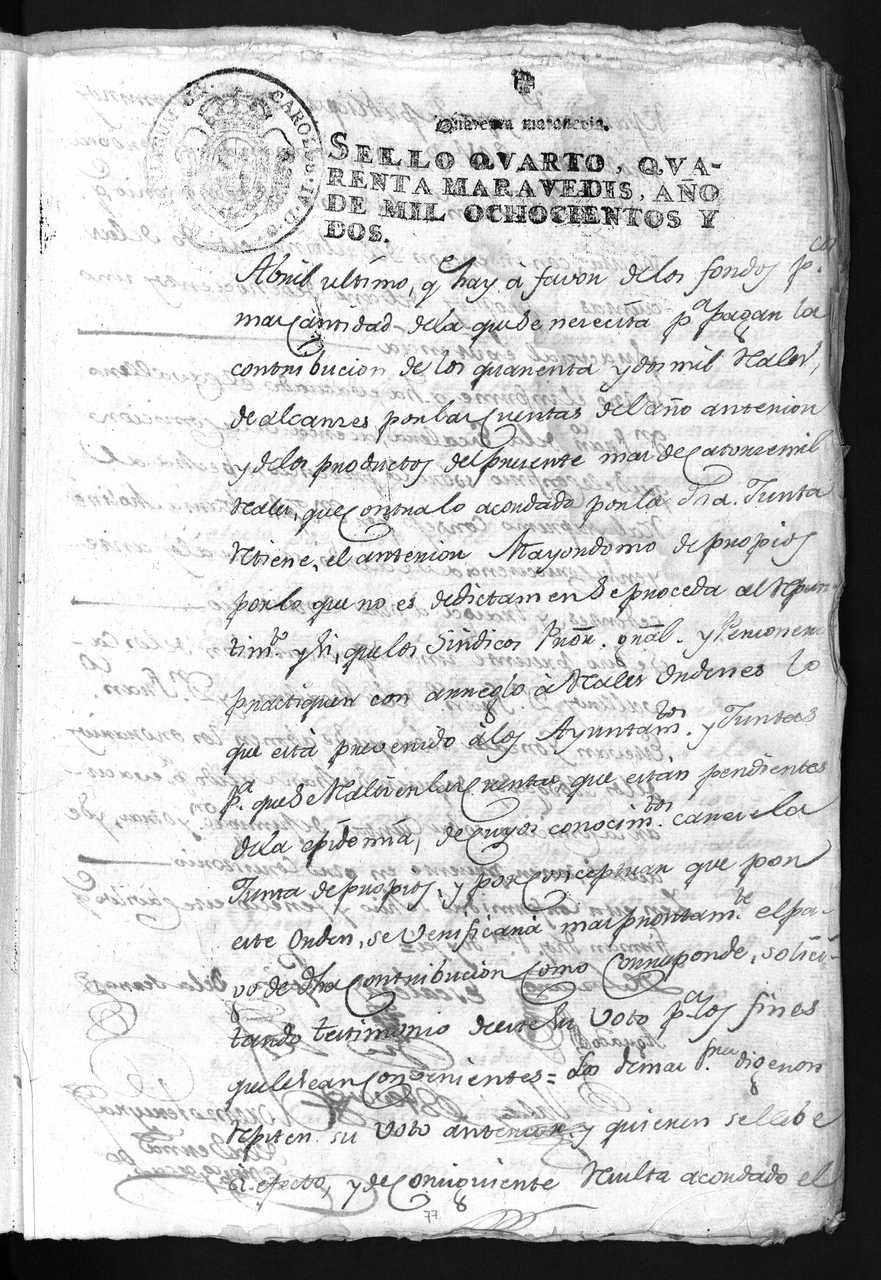 CAROLUS IV D G
Quarenta maravedis.
SELLO QVARTO, QVA-
RENTA MARAVEDIS, AÑO
DE MIL OCHOCIENTOS Y
DOS.
Abril ultimo, qe hay à favor de los fondos
mas Cantidad de la que se necesita pa pagar la
contribucion de los quarenta y dos mil Rales,
de alcanzes por las Cuentas del año anterior
y de los productos del presente mas de Catorze mil
Rales, que Contra lo acordado por la Dha. Junta
Rtiene, el anterior Mayordomo de propios
por lo que no es de dictamen se proceda al Repar-
timto y si, que los Sindicos Pror. gral. y Personero
practiquen con arreglo à Rales Ordenes lo
que està prevenido à los Ayuntamtos. y Juntas
pa. que se Ralizen las Cuentas que estàn pendientes
de la epidemia, de Cuyos conocimtos. carece la
Junta de propios, y por Conceptuar que por
este Orden, se verificarà mas prontamte. el pa-
go de dha Contribucion Como Corresponde, solici-
tando testimonio de este su voto pa los fines
que le sean Convenientes = Los demas Sres digeron
Rpiten su voto anterior y quieren se llebe
à efecto, y de Consiguiente Rsulta acordado el
77